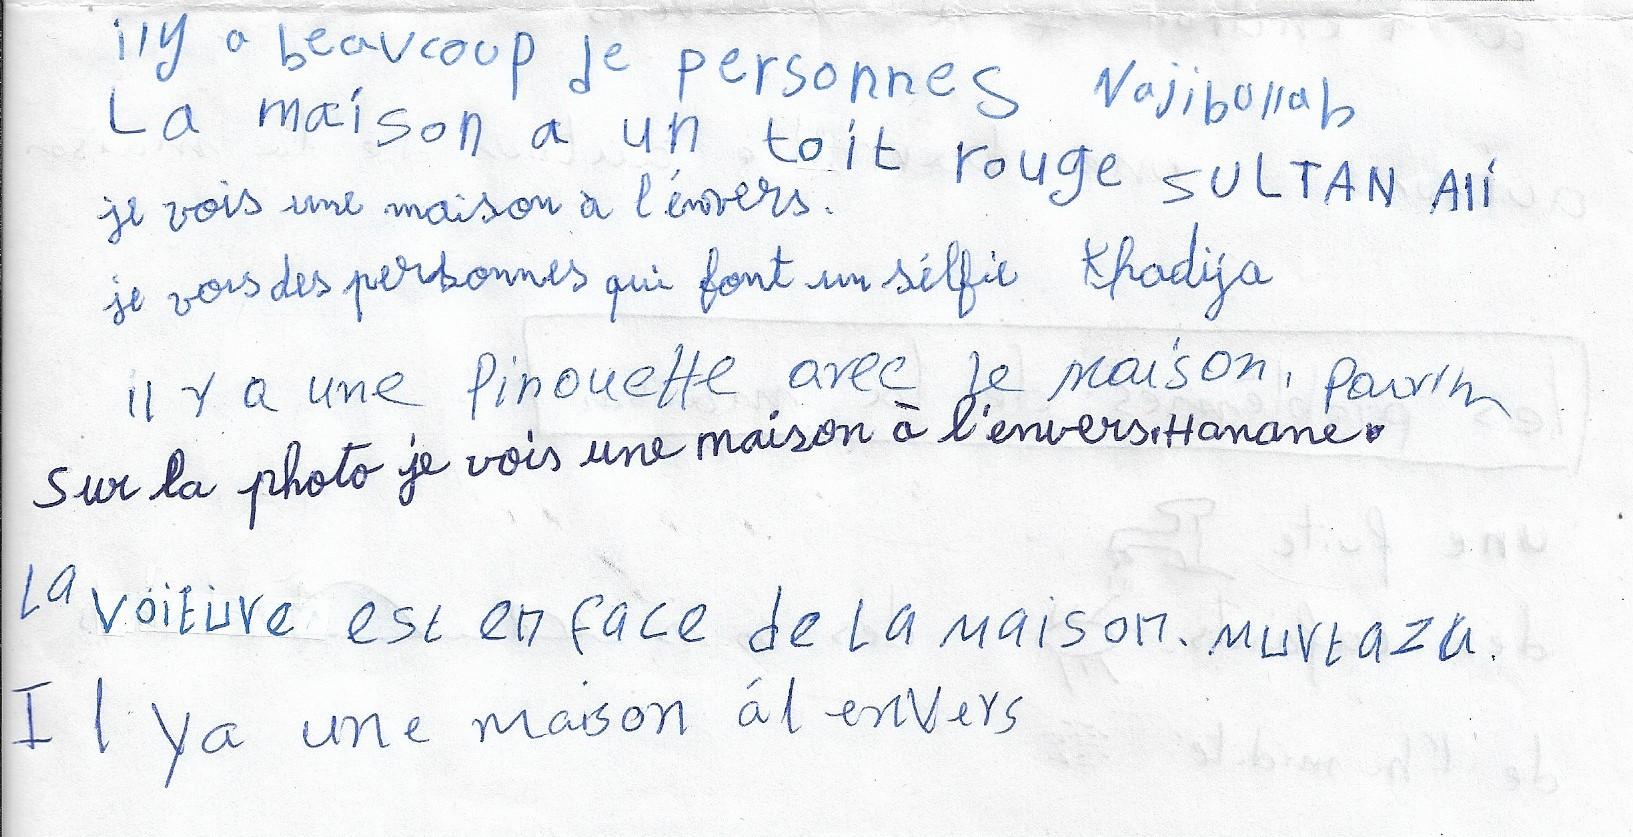 illy a beaucoup de personnes Najibullah
La maison a un toit rouge SULTAN Ali
je vois une maison à l'énvers.
je vois des personnes qui font un sélfie Khadija
il y a une pinouette avec le maison.
Sur la photo je vois une maison à l'envers. Hanane.
La voiture est en face de La maison. Murtaza.
Il ya une maison ál envers